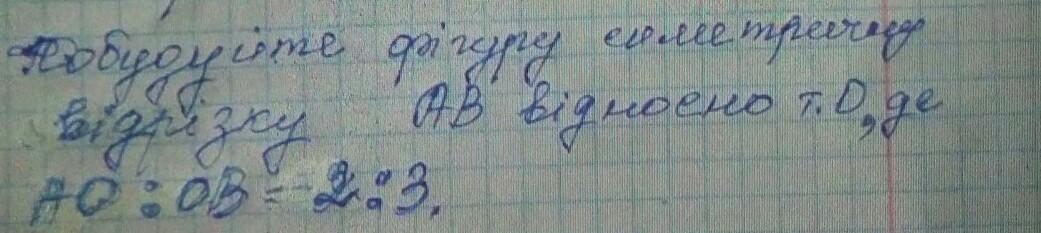 Побудуйте фігуру симетричну
відрізку АВ відносно т.О, де
АО : ОВ = 2 : 3.